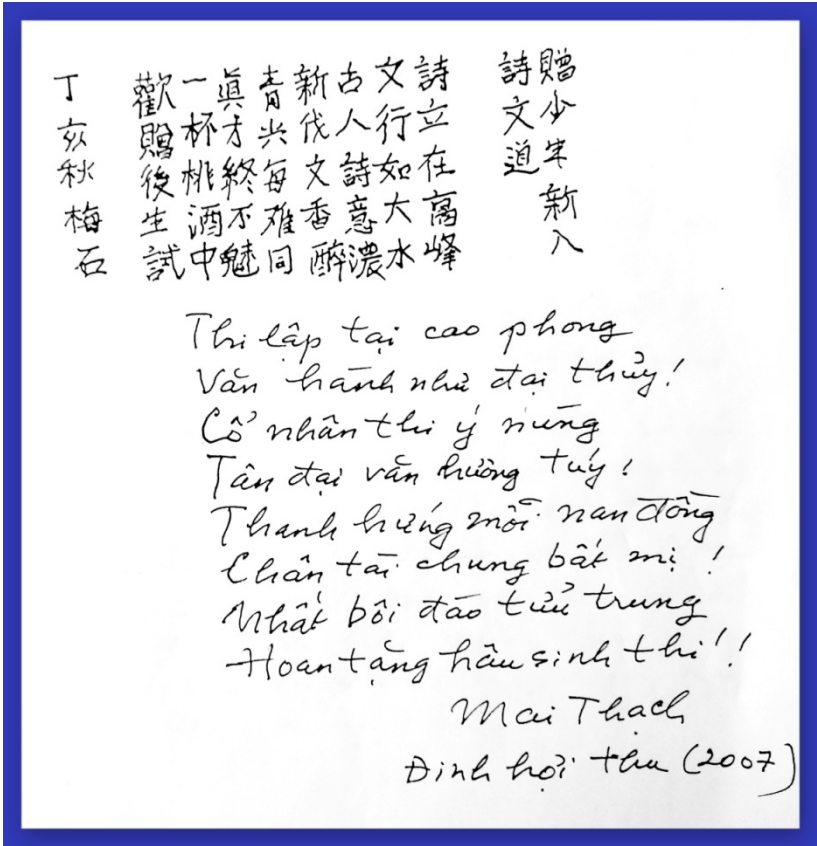 贈少年新入
詩文道
詩立在高峰
文行如大水
古人詩意濃
新代文香醉
青兴每难同
眞才終不魅
一杯桃酒中
歡贈後生試
丁亥秋梅石
Thi lập tại cao phong
Văn hành như đại thủy!
Cổ nhân thi ý nùng
Tân đại văn hương túy!
Thanh hứng mỗi nan đồng
Chân tài chung bất mị!
Nhất bôi đào tửu trung
Hoan tặng hậu sinh thí!!
Mai Thạch
Đinh hợi thu (2007)